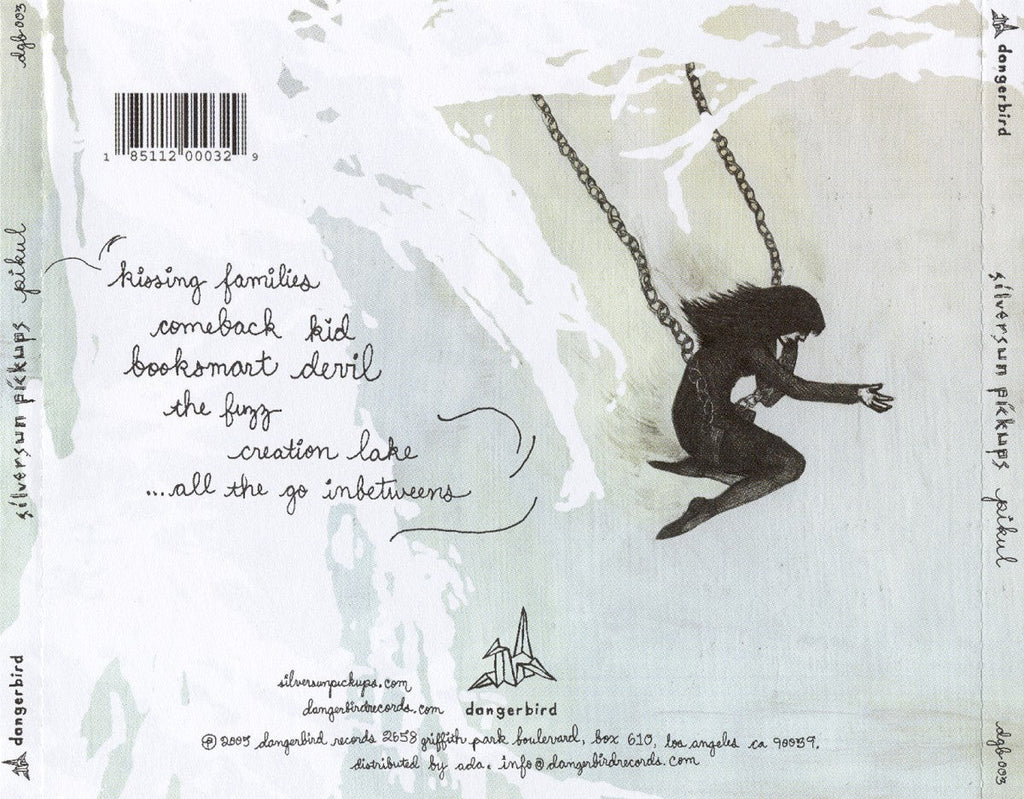 dgb-003
silversun pickups pikul
dangerbird
1 85112 00032 9
kissing families
comeback kid
booksmart devil
the fuzz
creation lake
...all the go inbetweens
silversunpickups.com
dangerbirdrecords.com dangerbird
℗ 2005 dangerbird records 2658 griffith park boulevard, box 610, los angeles ca 90039.
distributed by ada. info@dangerbirdrecords.com
dangerbird
silversun pickups pikul
dgb-003